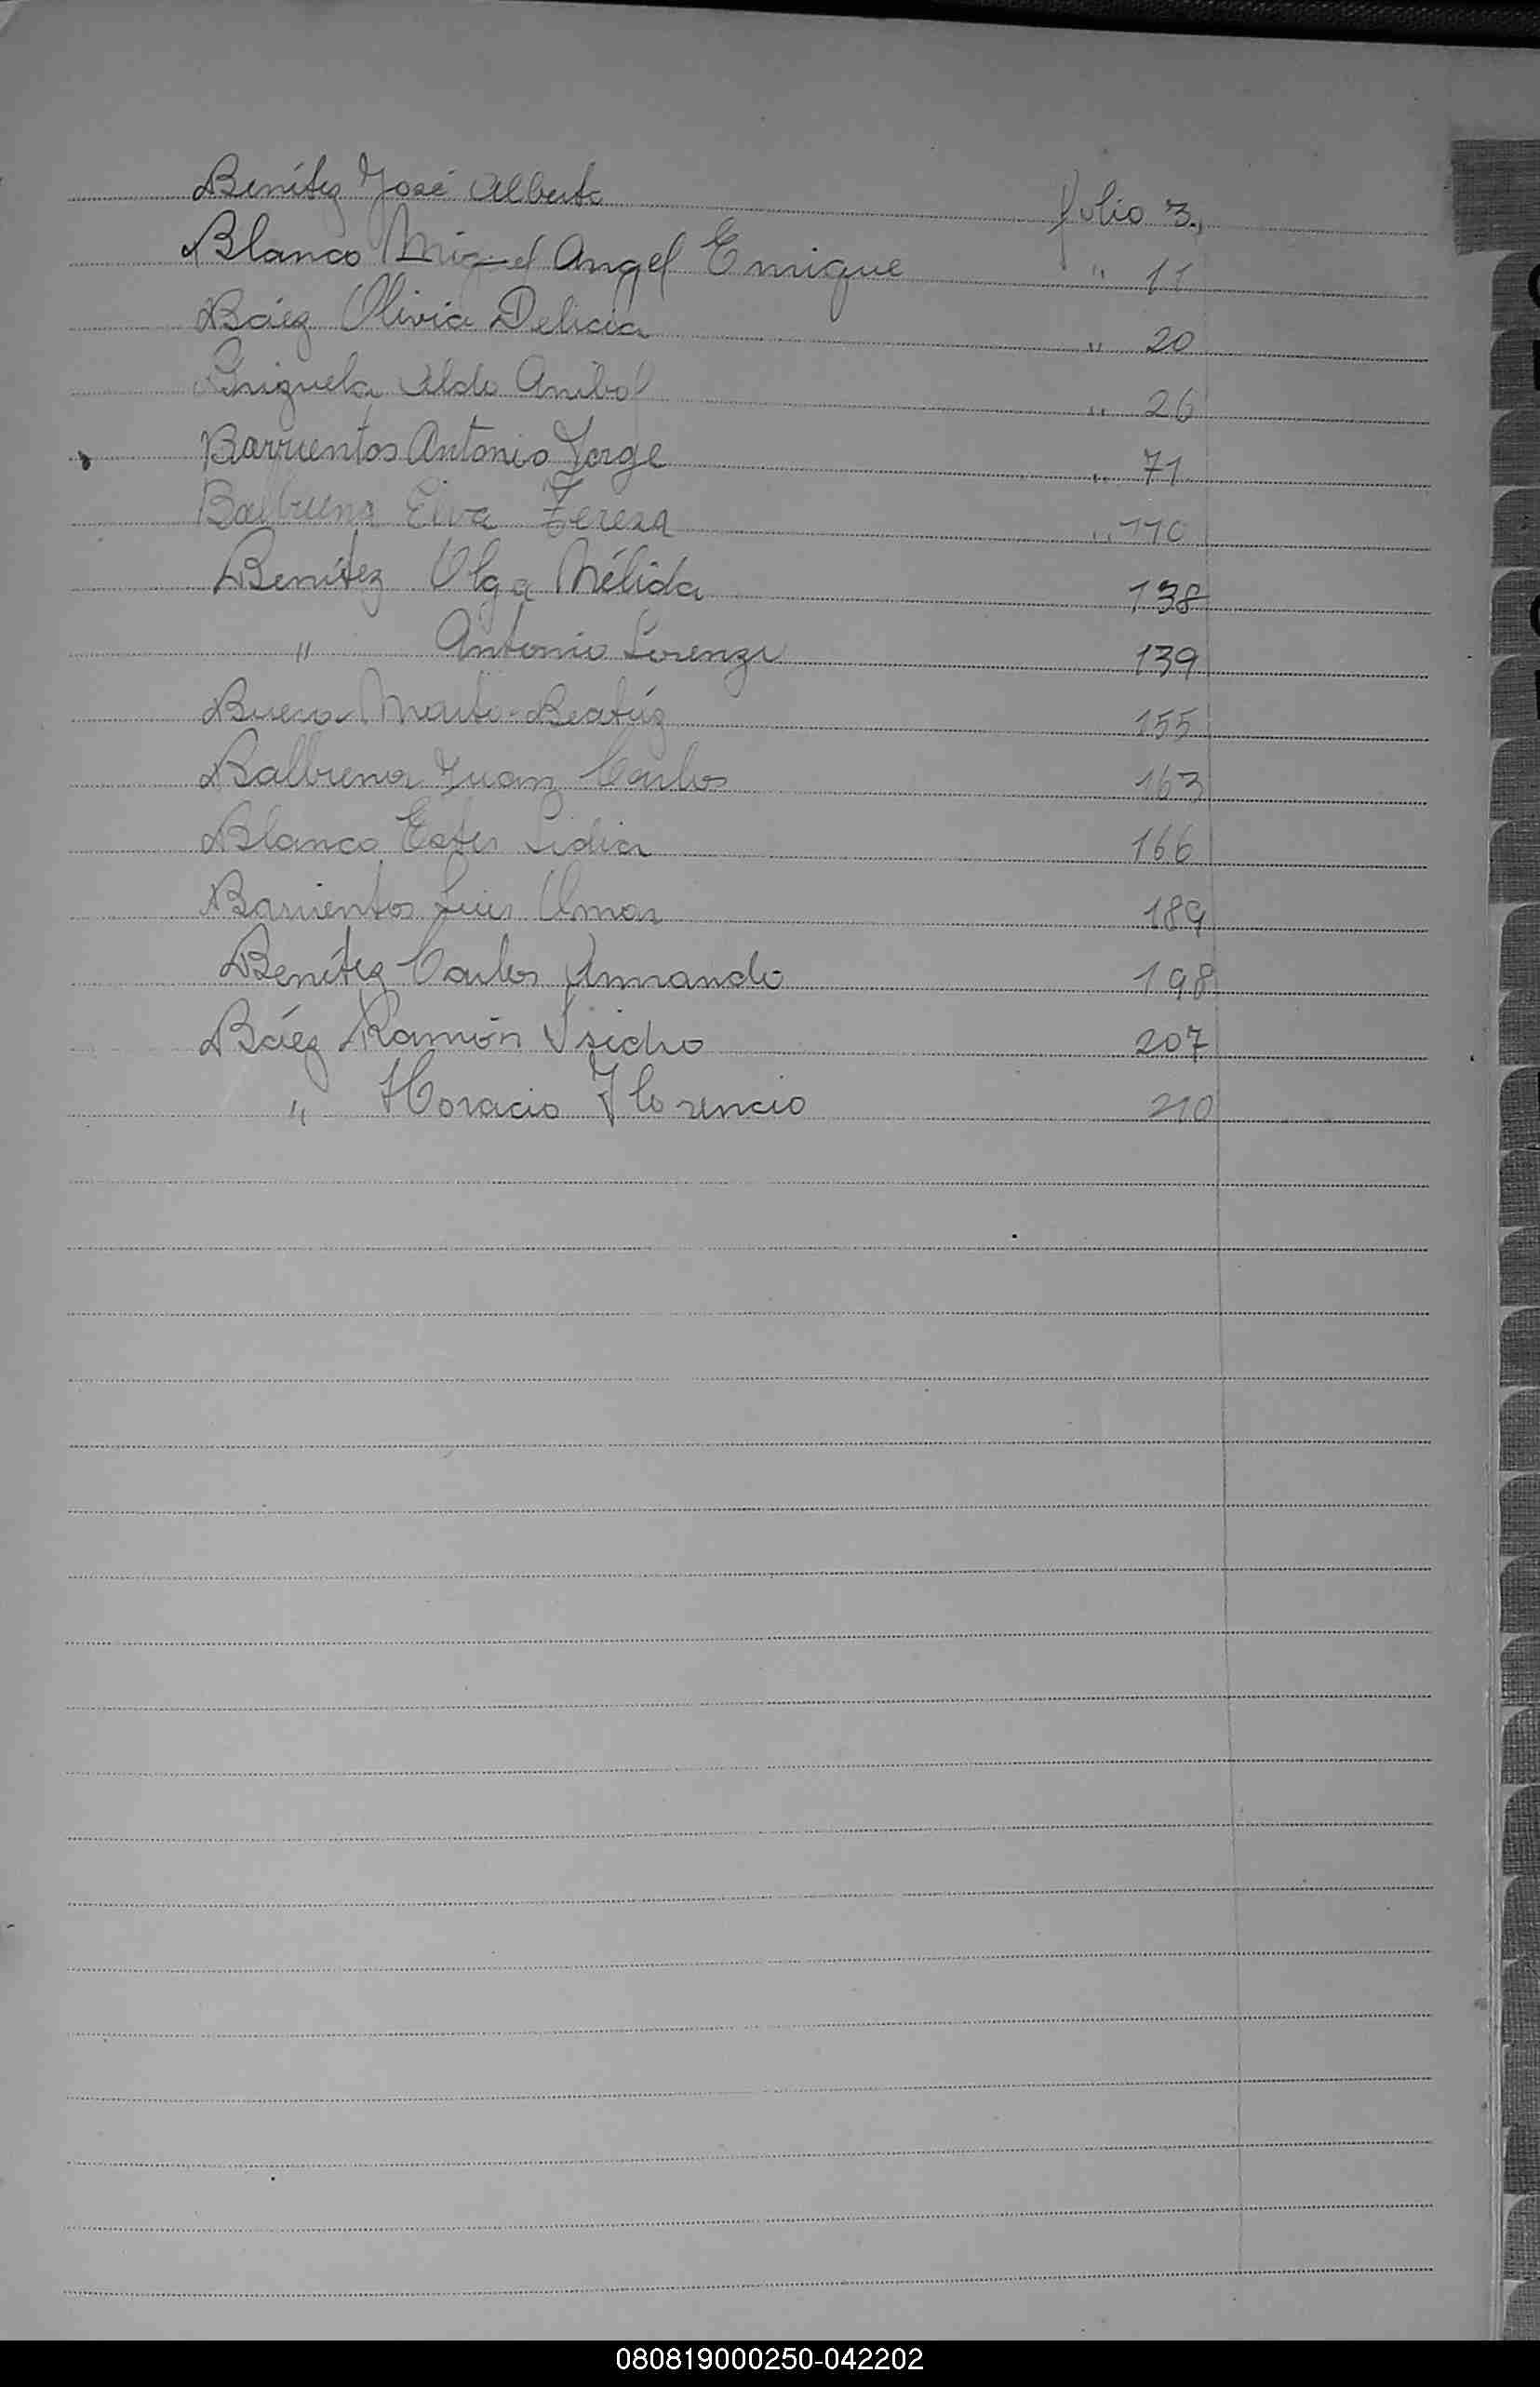 Benítez José Alberto folio 3.
Blanco Miguel Angel Enrique " 11
Báez Olivia Delicia " 20
Aldo Anibal " 26
Barrientos Antonio Jorge " 71
Balbuena Elva Teresa " 110
Benítez Olga Mélida 138
" Antonio Lorenzo 139
Beatríz 155
Balbuena Juan Carlos 163
Blanco Ester Lidia 166
Barrientos Luis Omar 189
Benítez Carlos Armando 198
Báez Ramón Isidro 207
" Horacio Florencio 210
080819000250-042202